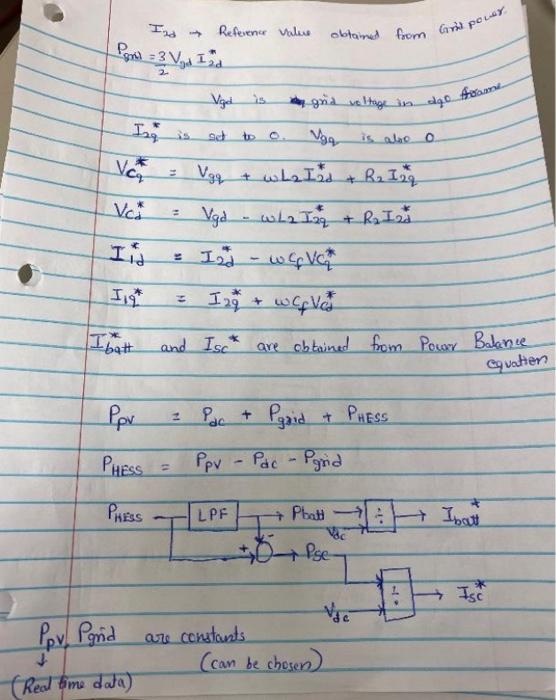 I2d → Reference value obtained from Grid power.
Pgrid = 3/2 Vgd I2d*
Vgd is grid voltage in dq0 frame
I2q* is set to 0. Vgq is also 0
Vcq* = Vgq + ωL2 I2d* + R2 I2q*
Vcd* = Vgd - ωL2 I2q* + R2 I2d*
I1d* = I2d* - ωCf Vcq*
I1q* = I2q* + ωCf Vcd*
Ibatt* and Isc* are obtained from Power Balance
equation
Ppv = Pdc + Pgrid + PHESS
PHESS = Ppv - Pdc - Pgrid
PHESS LPF → Pbatt → ÷ → Ibatt*
Vdc
+ - → Psc
÷ → Isc*
Vdc
Ppv, Pgrid are constants
↓ (can be chosen)
(Real time data)